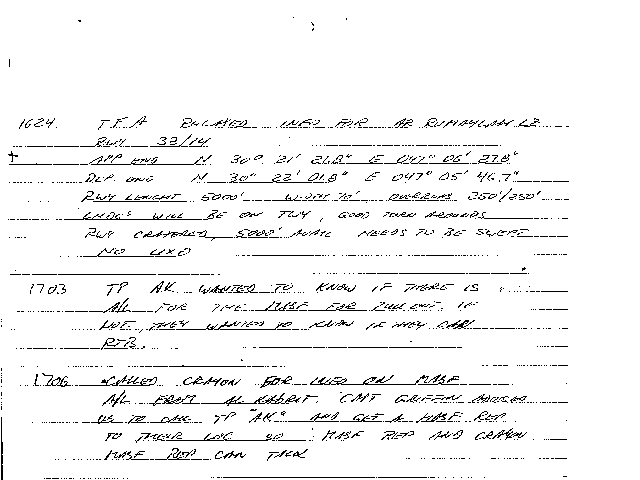 1624 TFA RELAYED INFO FOR AR RUMAYLAH LZ
RWY 32/14
APP END N 30° 21' 21.8" E 047° 06' 27.8"
DEP END N 30° 22' 01.8" E 047° 05' 46.7"
RWY LENGHT 5000' WIDTH 70' OVERRUN 250'/250'
LNDGS WILL BE ON TWY, GOOD TURN AROUNDS
RWY CRATERED, 5000' AVAIL NEEDS TO BE SWEPT
NO UXO
1703 TP AK WANTED TO KNOW IF THERE IS
A/L FOR THE MASF FOR PULL OUT. IF
NOT, THEY WANTED TO KNOW IF THEY CAN
RTB.
1706 CALLED CRAYON FOR INFO ON MASF
A/L FROM AL RABBIT. CMT GRIFFIN
US TO CALL TP "AK" AND GET A MASF REP
TO THEIR LOC SO MASF REP AND CRAYON
MASF REP CAN TALK